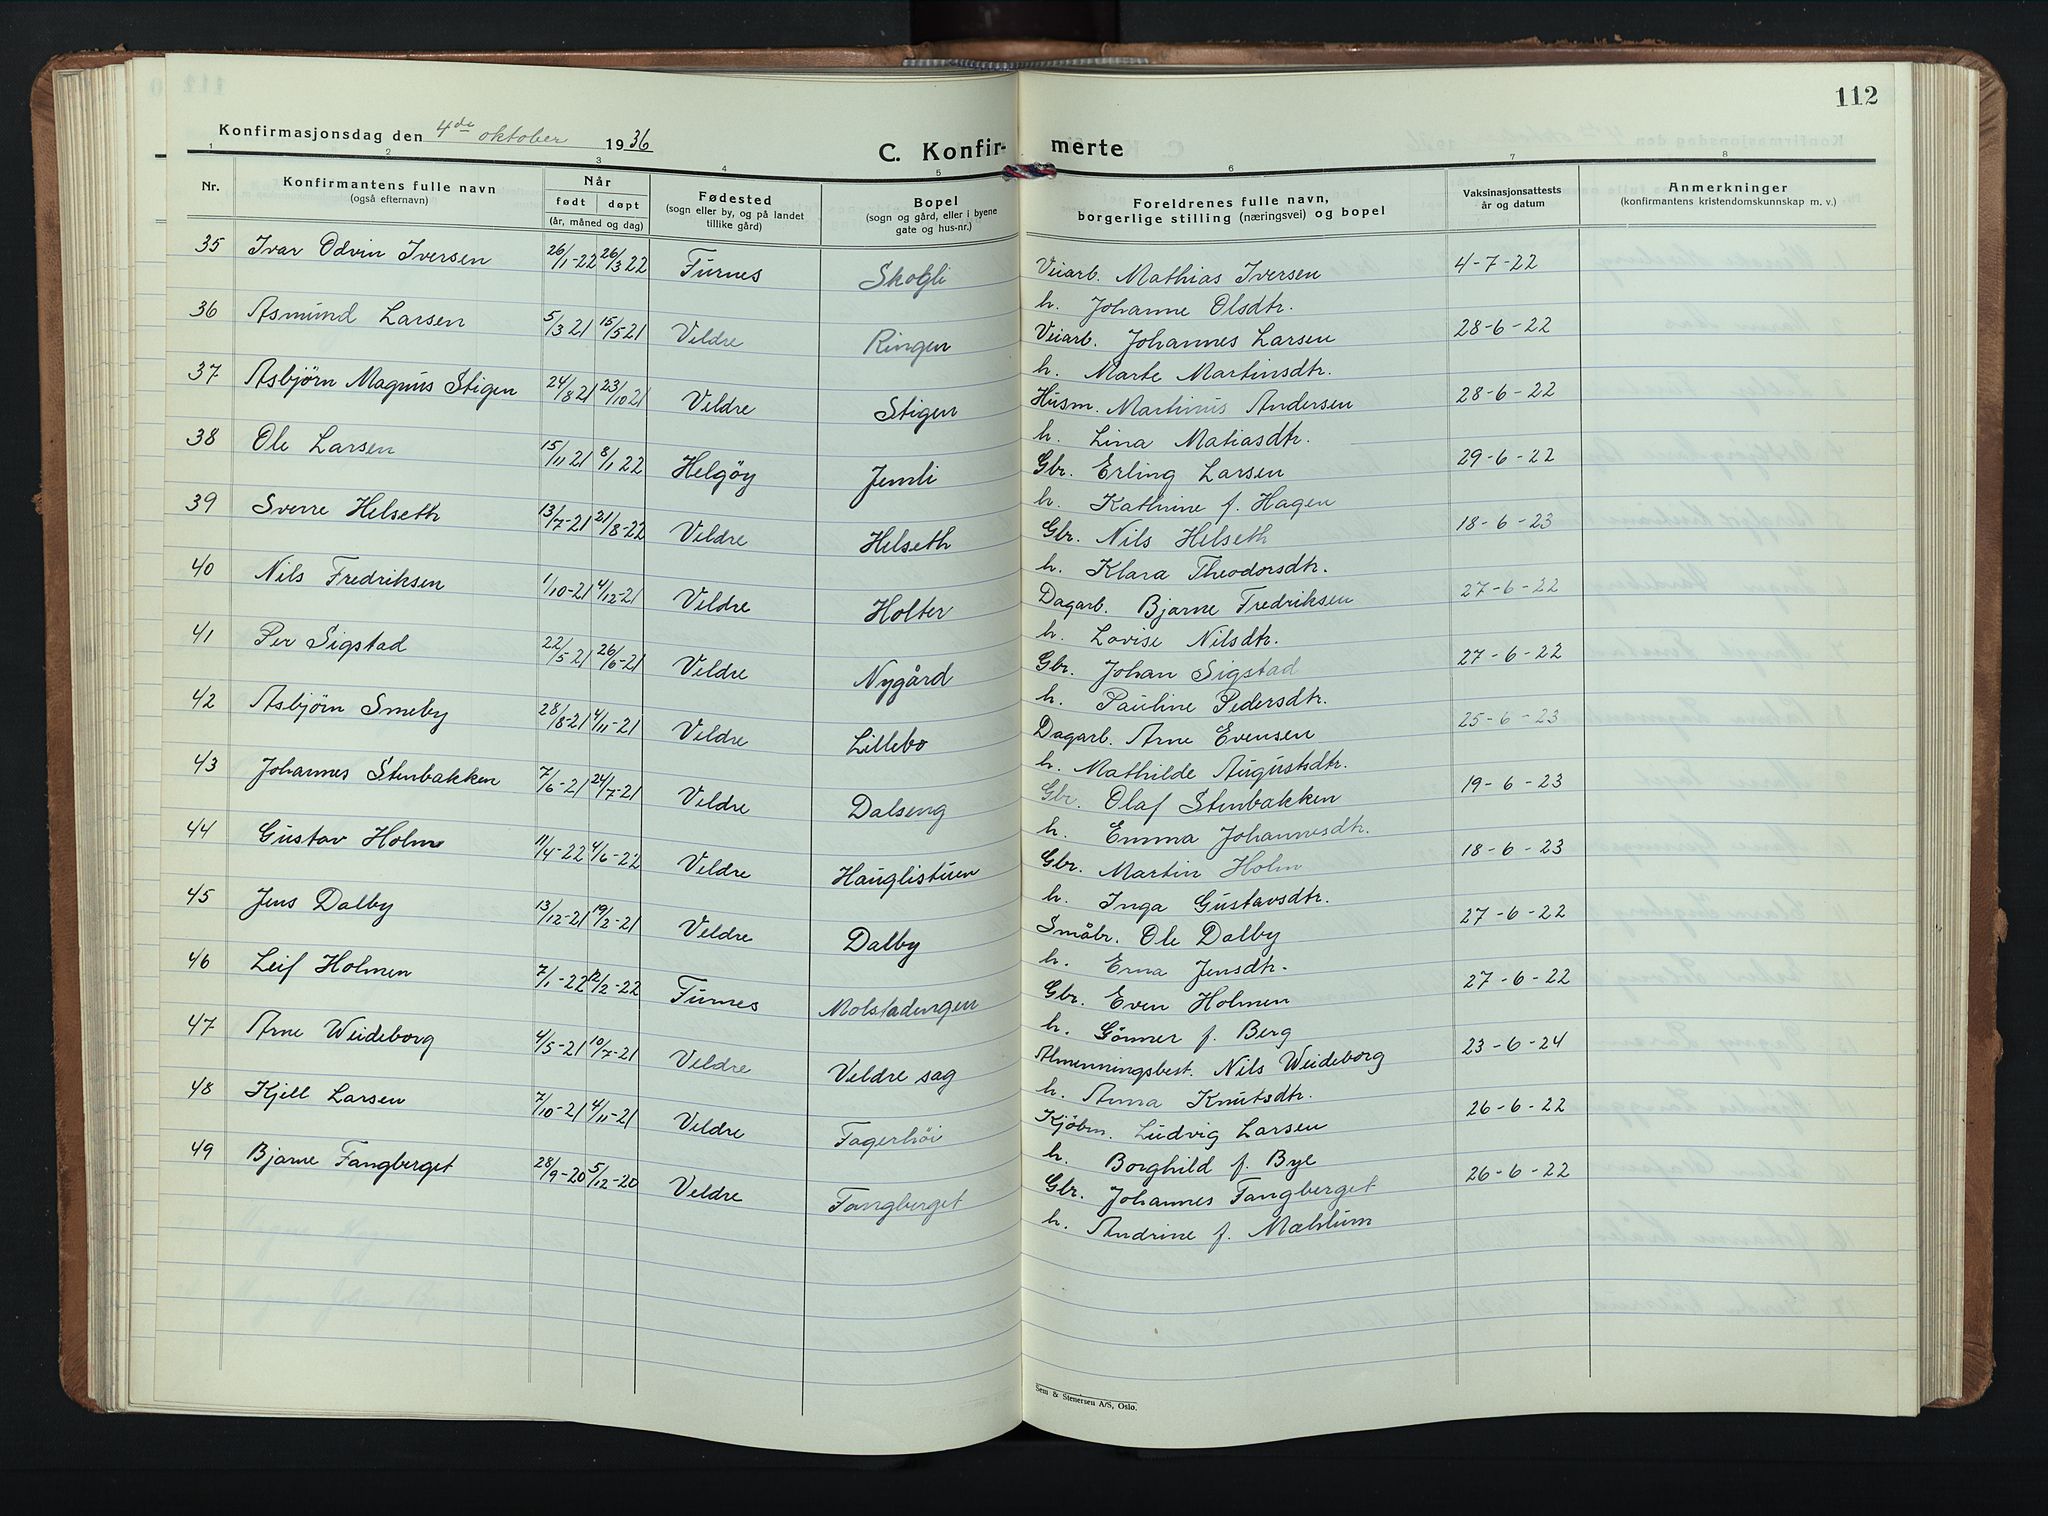 112
Konfirmasjonsdag den 4de oktober 1936
C. Konfirmerte
1 2 3 4 5 6 7 8
Nr. Konfirmantens fulle navn (også efternavn) Når født døpt (år, måned og dag) Fødested (sogn eller by, og på landet tillike gård) Bopel (sogn og gård, eller i byene gate og hus-nr.) Foreldrenes fulle navn, borgerlige stilling (næringsvei) og bopel Vaksinasjonsattests år og datum Anmerkninger (konfirmantens kristendomskunnskap m. v.)
35 Ivar Odvin Iversen 26/1-22 26/3 22 Furnes Skogli Veiarb. Mathias Iversen 4-7-22
h. Johanne Olsdtr.
36 Asmund Larsen 5/3 21 15/5 21 Veldre Ringen Veiarb. Johannes Larsen 28-6-22
h. Marte Martinsdtr.
37 Asbjørn Magnus Stigen 24/8 21 23/10 21 Veldre Stigen Husm. Martinus Andersen 28-6-22
h. Lina Matiasdtr.
38 Ole Larsen 15/11 21 8/1 22 Helgøy Jemli Gbr. Erling Larsen 29-6-22
h. Kathrine f. Hagen
39 Sverre Helseth 13/7-21 21/8-22 Veldre Helseth Gbr. Nils Helseth 18-6-23
h. Klara Theodorsdtr.
40 Nils Fredriksen 1/10-21 4/12-21 Veldre Holter Dagarb. Bjarne Fredriksen 27-6-22
h. Lovise Nilsdtr.
41 Per Sigstad 22/5-21 26/6-21 Veldre Nygård Gbr. Johan Sigstad 27-6-22
h. Pauline Pedersdtr.
42 Asbjørn Smeby 28/8-21 4/11-21 Veldre Lillebo Dagarb. Arne Evensen 25-6-23
h. Mathilde Augustsdtr.
43 Johannes Stenbakken 7/6-21 24/7-21 Veldre Dalseng Gbr. Olaf Stenbakken 19-6-23
h. Emma Johannesdtr.
44 Gustav Holm 11/4-22 4/6-22 Veldre Hauglistuen Gbr. Martin Holm 18-6-23
h. Inga Gustavsdtr.
45 Jens Dalby 13/12-21 19/2-21 Veldre Dalby Småbr. Ole Dalby 27-6-22
h. Erna Jensdtr.
46 Leif Holmen 7/1-22 12/2-22 Furnes Molstadengen Gbr. Even Holmen 27-6-22
h. Gönner f. Berg
47 Arne Weideborg 4/5-21 10/7-21 Veldre Veldre sag Almenningsbest. Nils Weideborg 23-6-24
h. Anna Knutsdtr.
48 Kjell Larsen 7/10-21 4/11-21 Veldre Fagerhöi Kjöbm. Ludvig Larsen 26-6-22
h. Borghild f. Bye
49 Bjarne Fangberget 28/9-20 5/12-20 Veldre Fangberget Gbr. Johannes Fangberget 26-6-22
h. Andrine f. Mælum
Sem & Stenersen A/S, Oslo.